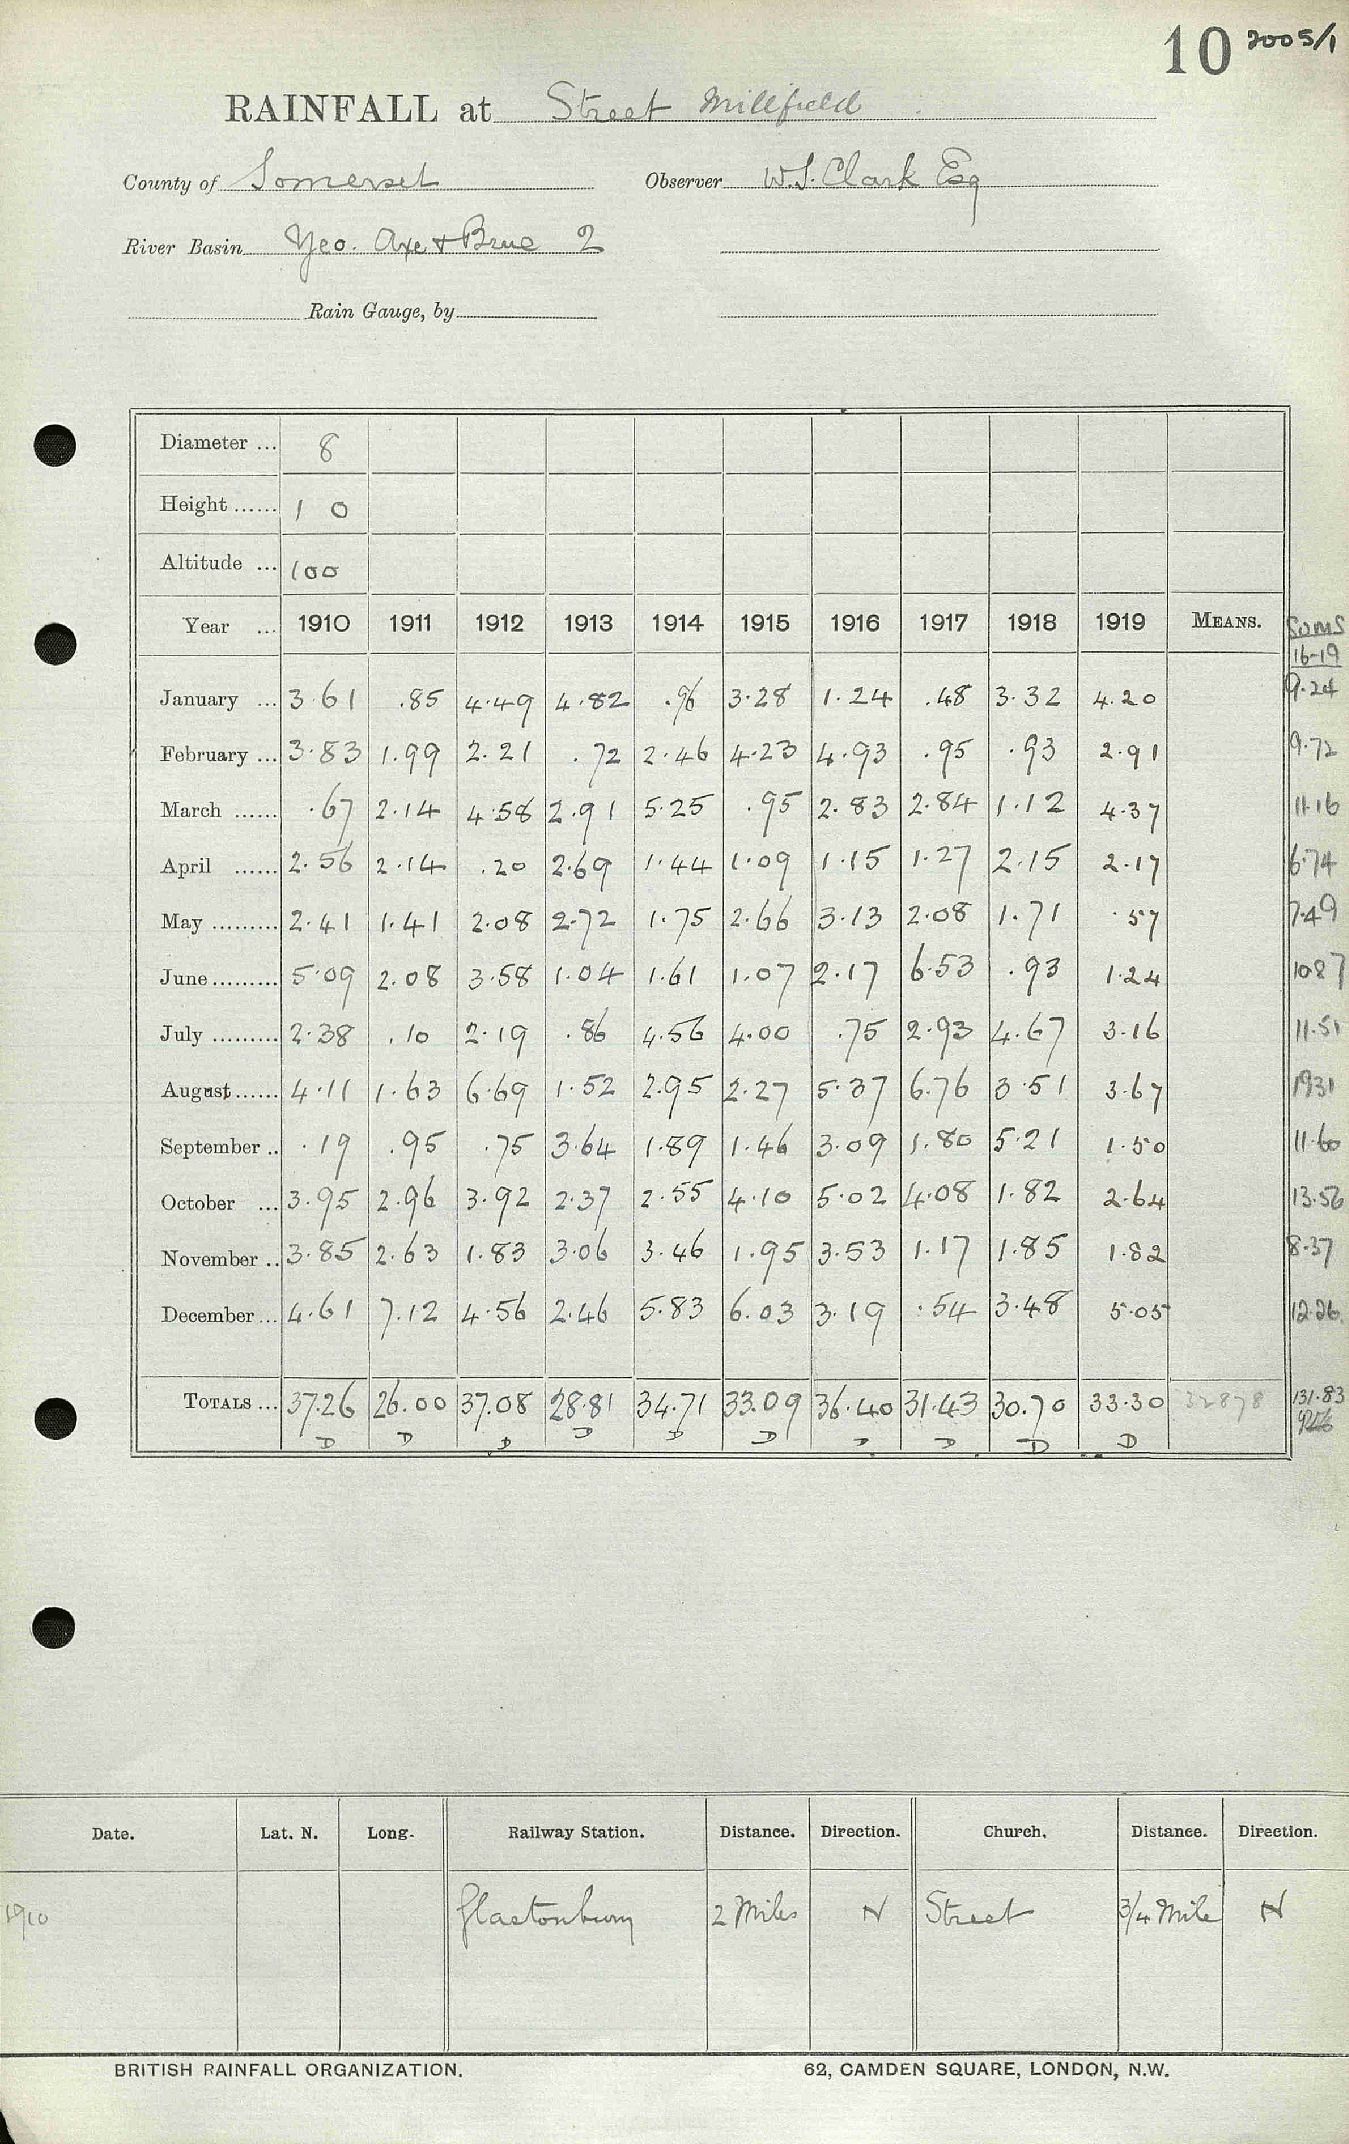 10 2005/1
RAINFALL at Street Millfield
County of Somerset Observer W.S. Clark Esq
River Basin Yeo. Axe + Brue 2
Rain Gauge, by
Diameter ... 8
Height ...... 1 0
Altitude ... 100
Year ... 1910 1911 1912 1913 1914 1915 1916 1917 1918 1919 MEANS. SUMS
16-19
January ... 3.61 .85 4.49 4.82 .96 3.28 1.24 .48 3.32 4.20 9.24
February ... 3.83 1.99 2.21 .72 2.46 4.23 4.93 .95 .93 2.91 9.72
March ...... .67 2.14 4.58 2.91 5.25 .95 2.83 2.84 1.12 4.37 11.16
April ...... 2.56 2.14 .20 2.69 1.44 1.09 1.15 1.27 2.15 2.17 6.74
May ......... 2.41 1.41 2.08 2.72 1.75 2.66 3.13 2.08 1.71 .57 7.49
June ......... 5.09 2.08 3.58 1.04 1.61 1.07 2.17 6.53 .93 1.24 10.87
July ......... 2.38 .10 2.19 .86 4.56 4.00 .75 2.93 4.67 3.16 11.51
August ...... 4.11 1.63 6.69 1.52 2.95 2.27 5.37 6.76 3.51 3.67 19.31
September .. .19 .95 .75 3.64 1.89 1.46 3.09 1.80 5.21 1.50 11.60
October ... 3.95 2.96 3.92 2.37 2.55 4.10 5.02 4.08 1.82 2.64 13.56
November .. 3.85 2.63 1.83 3.06 3.46 1.95 3.53 1.17 1.85 1.82 8.37
December ... 4.61 7.12 4.56 2.46 5.83 6.03 3.19 .54 3.48 5.05 12.26
TOTALS ... 37.26 26.00 37.08 28.81 34.71 33.09 36.40 31.43 30.70 33.30 32878 131.83
D D D D D D D D D D
Date. Lat. N. Long. Railway Station. Distance. Direction. Church. Distance. Direction.
1910 Glastonbury 2 Miles N Street 3/4 Mile N
BRITISH RAINFALL ORGANIZATION. 62, CAMDEN SQUARE, LONDON, N.W.